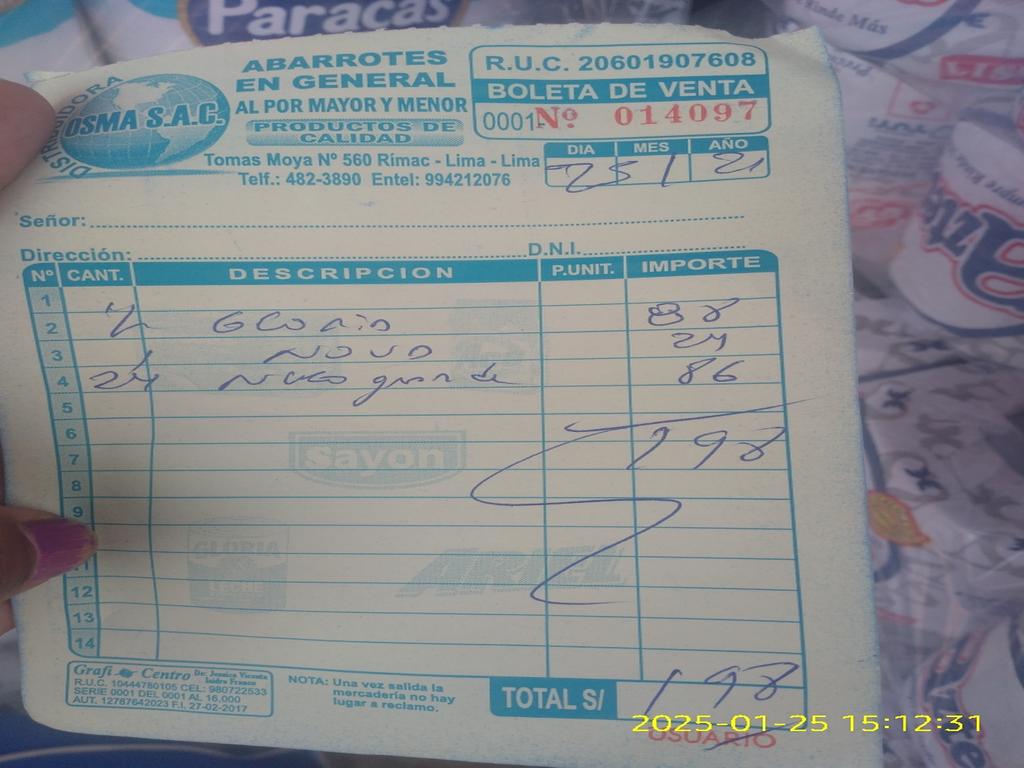 Paracas
Rinde Más
DISTRIBUIDORA
OSMA S.A.C.
ABARROTES
EN GENERAL
AL POR MAYOR Y MENOR
PRODUCTOS DE
CALIDAD
Tomas Moya Nº 560 Rímac - Lima - Lima
Telf.: 482-3890 Entel: 994212076
R.U.C. 20601907608
BOLETA DE VENTA
0001-Nº 014097
DIA MES AÑO
25 1
Señor:
Dirección: D.N.I.
Nº CANT. DESCRIPCION P.UNIT. IMPORTE
1
2 Gloria 88
3 NOVO 24
4 24 grande 86
5
6
7 198
Sayon
8
9
11
GLORIA
LECHE
ARIEL
12
13
14
Grafi Centro De: Jessica Vicenta
Isidro Franco
R.U.C. 10444780105 CEL: 980722533
SERIE 0001 DEL 0001 AL 16,000
AUT. 12787642023 F.I. 27-02-2017
NOTA: Una vez salida la
mercadería no hay
lugar a reclamo.
TOTAL S/ 198
USUARIO
2025-01-25 15:12:31